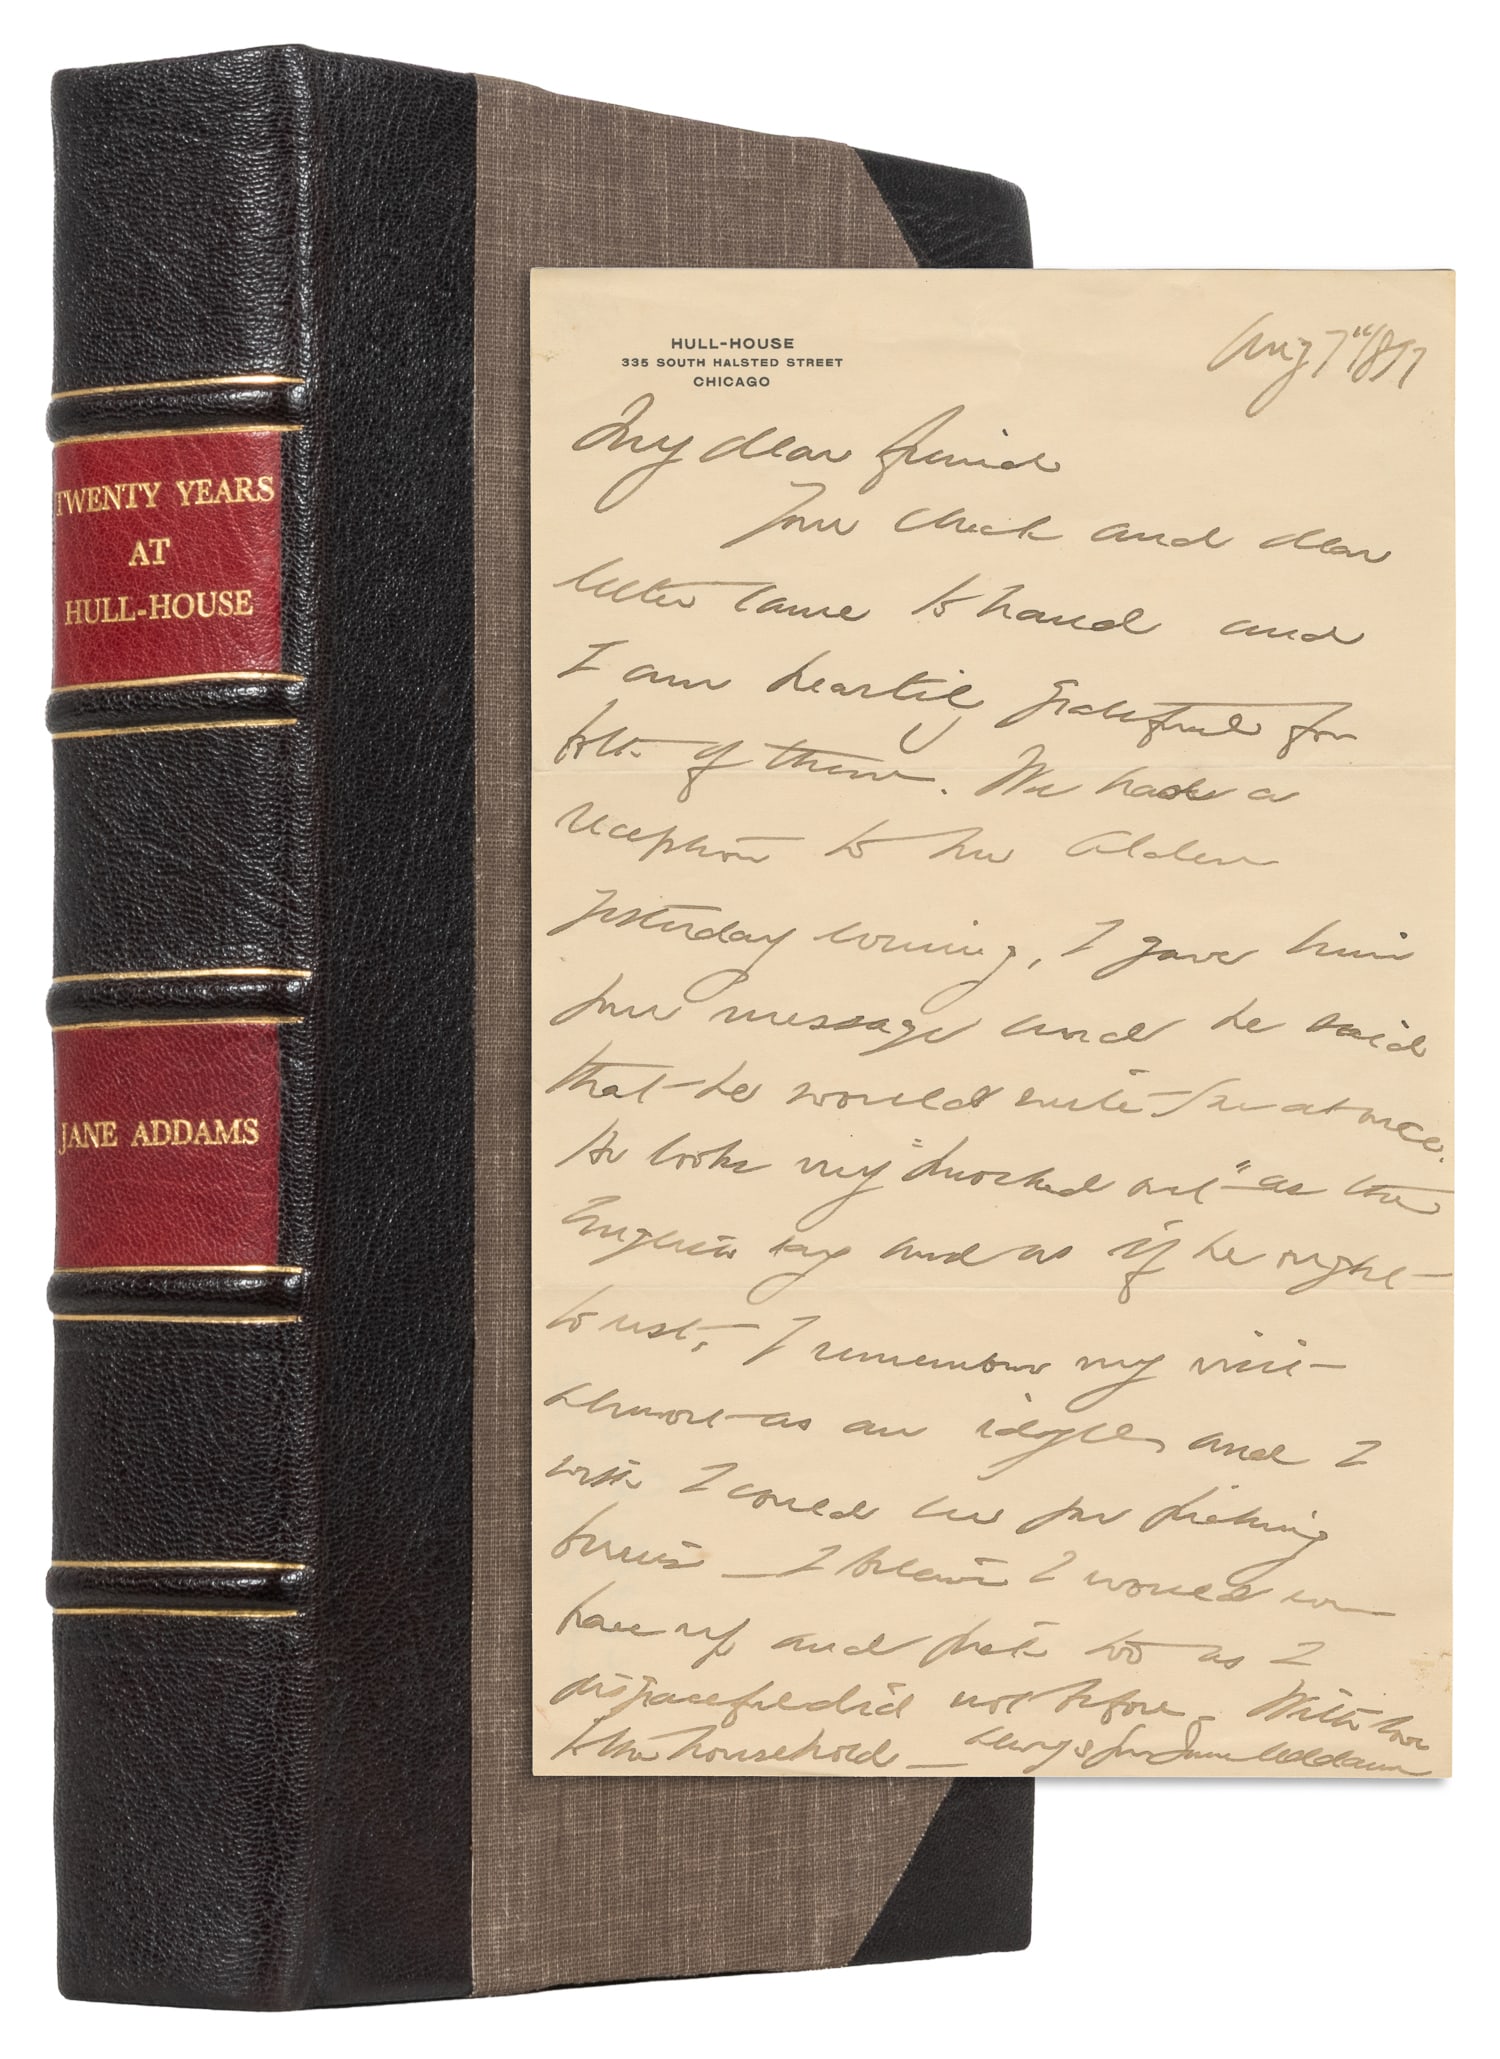 TWENTY YEARS
AT
HULL-HOUSE
JANE ADDAMS
HULL-HOUSE
335 SOUTH HALSTED STREET
CHICAGO
Aug 7" 1897
My dear friend
Your check and dear
letter came to hand and
I am heartily grateful for
both of them. We had a
reception to Mr Alden
yesterday evening, I gave him
your message and he said
that he would write you at once.
He looks very "knocked out" as the
English say and as if he ought
to rest, I remember my visit
almost as an idyll, and I
wish I could see you picking
berries — I believe I would
and pick too as I
disgracefully did not before. With love
to the household — always yrs Jane Addams